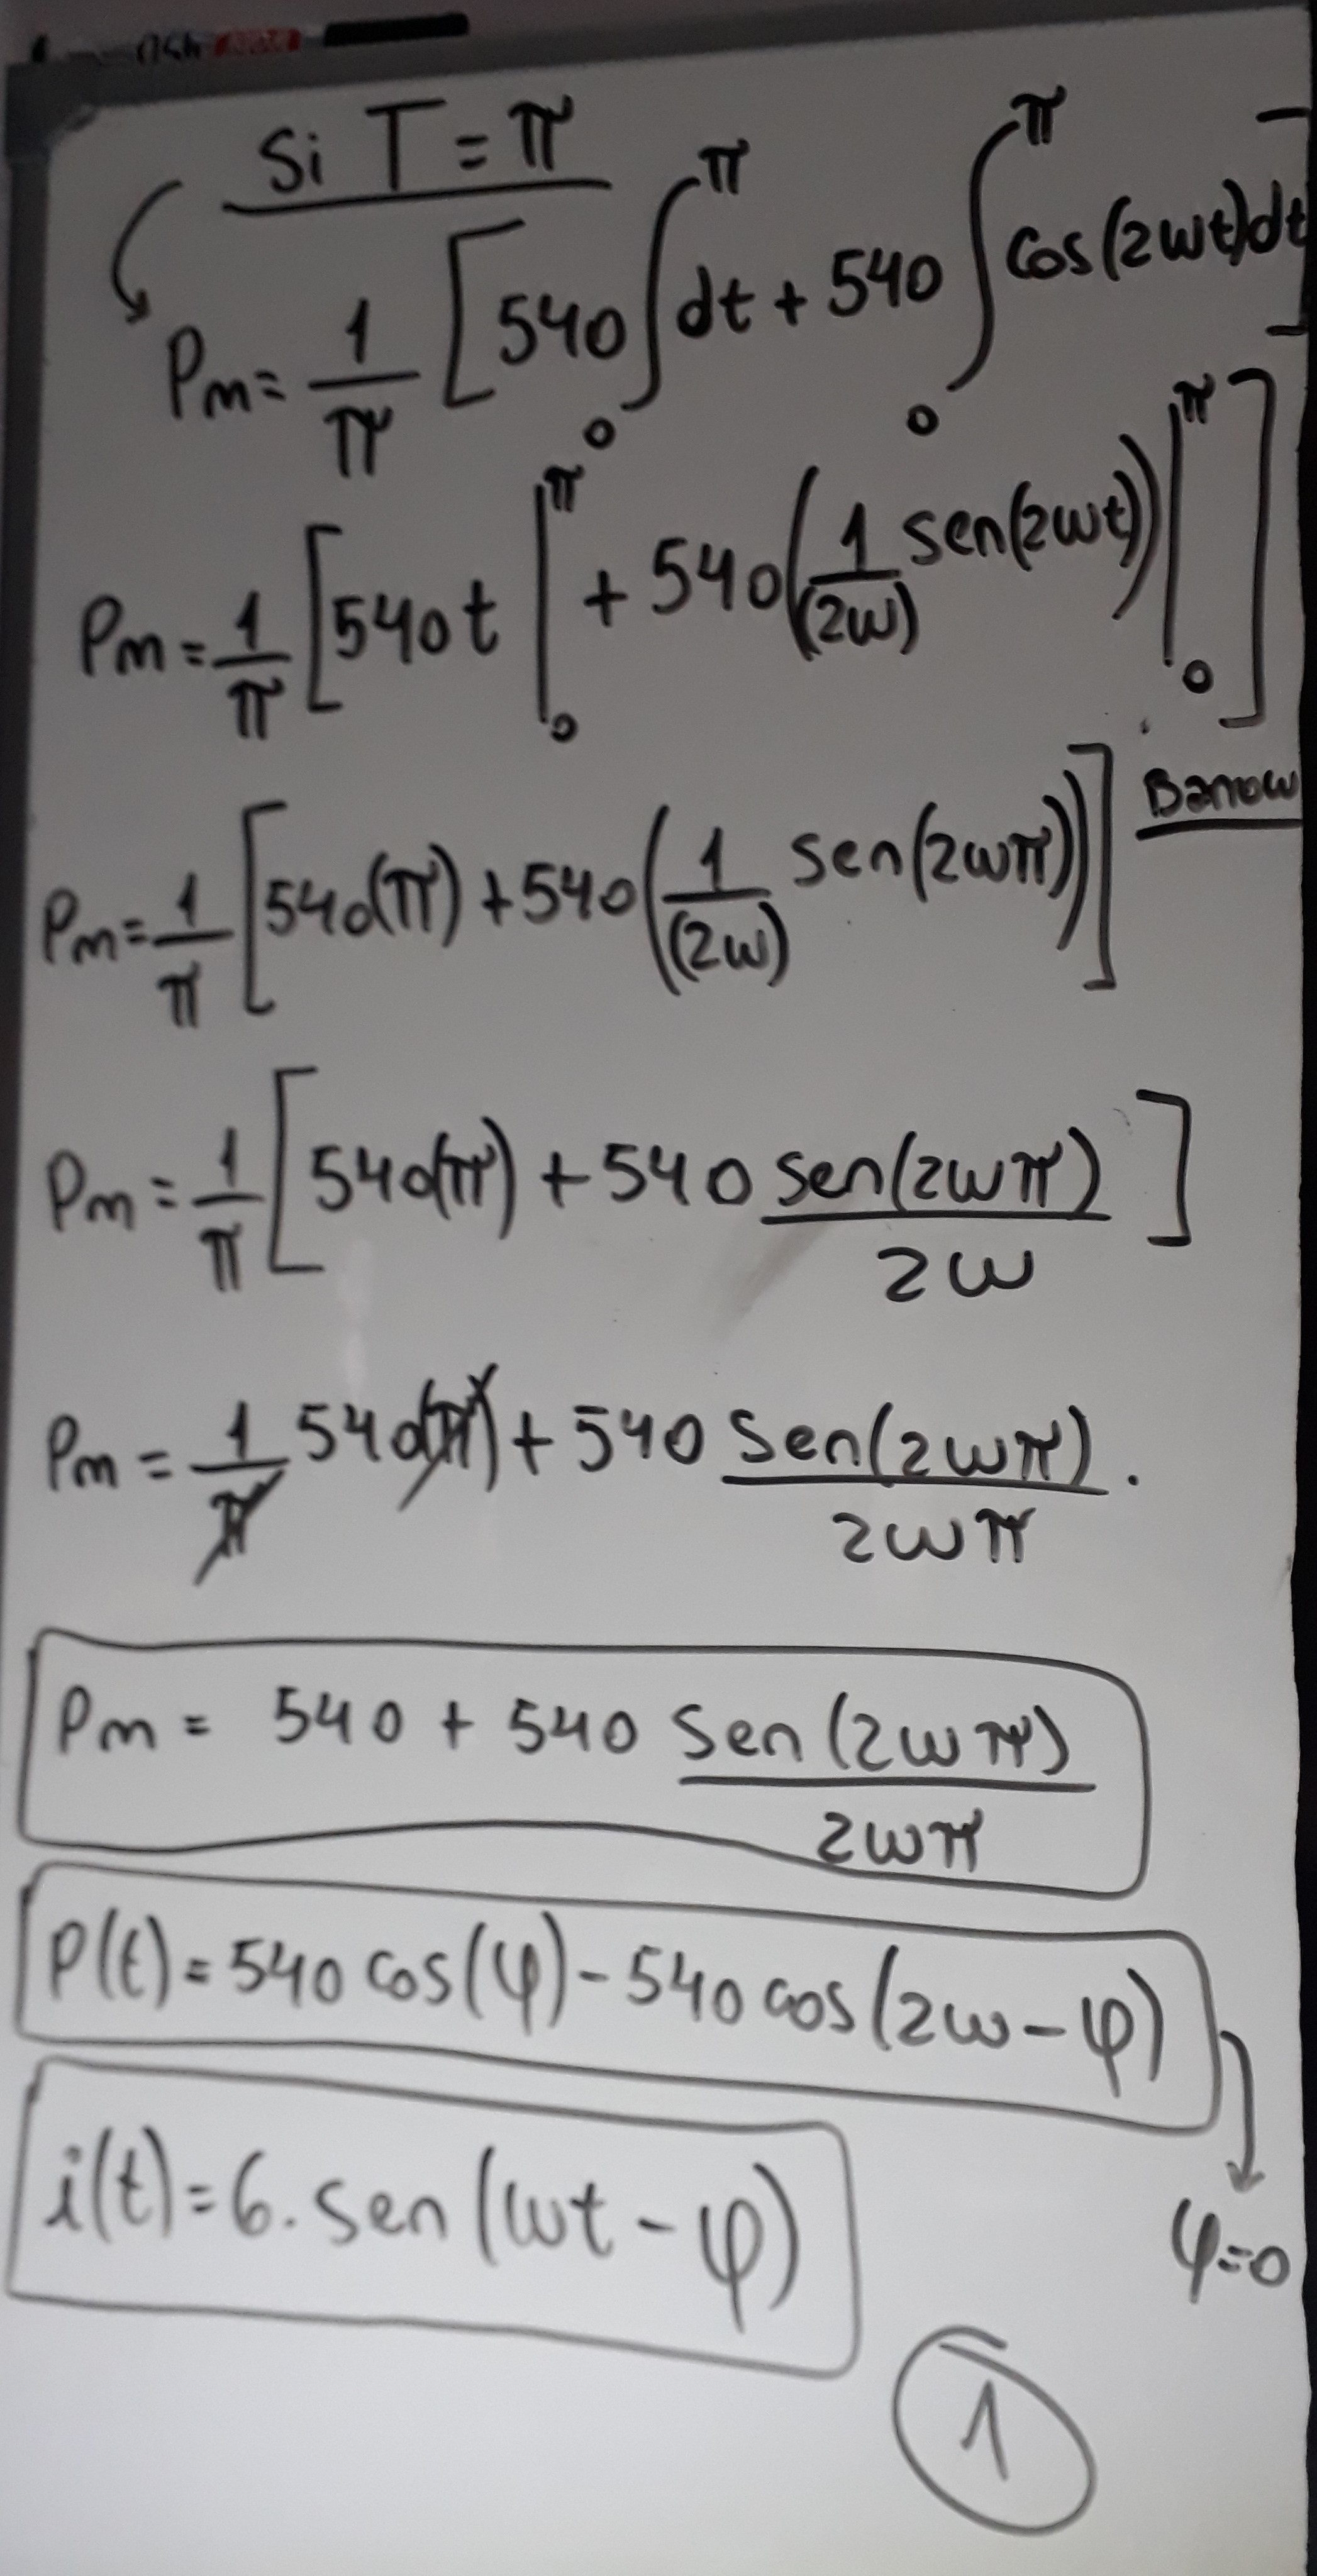 Si T = π
Pm = 1/π [540 ∫₀^π dt + 540 ∫₀^π cos(2ωt)dt]
Pm = 1/π [540t |₀^π + 540(1/(2ω) sen(2ωt))|₀^π]
Barrow
Pm = 1/π [540(π) + 540(1/(2ω) sen(2ωπ))]
Pm = 1/π [540(π) + 540 sen(2ωπ)/2ω]
Pm = 1/π 540(π) + 540 sen(2ωπ)/2ωπ.
Pm = 540 + 540 sen(2ωπ)/2ωπ
P(t) = 540 cos(φ) - 540 cos(2ω - φ)
φ=0
i(t) = 6. sen(ωt - φ)
1